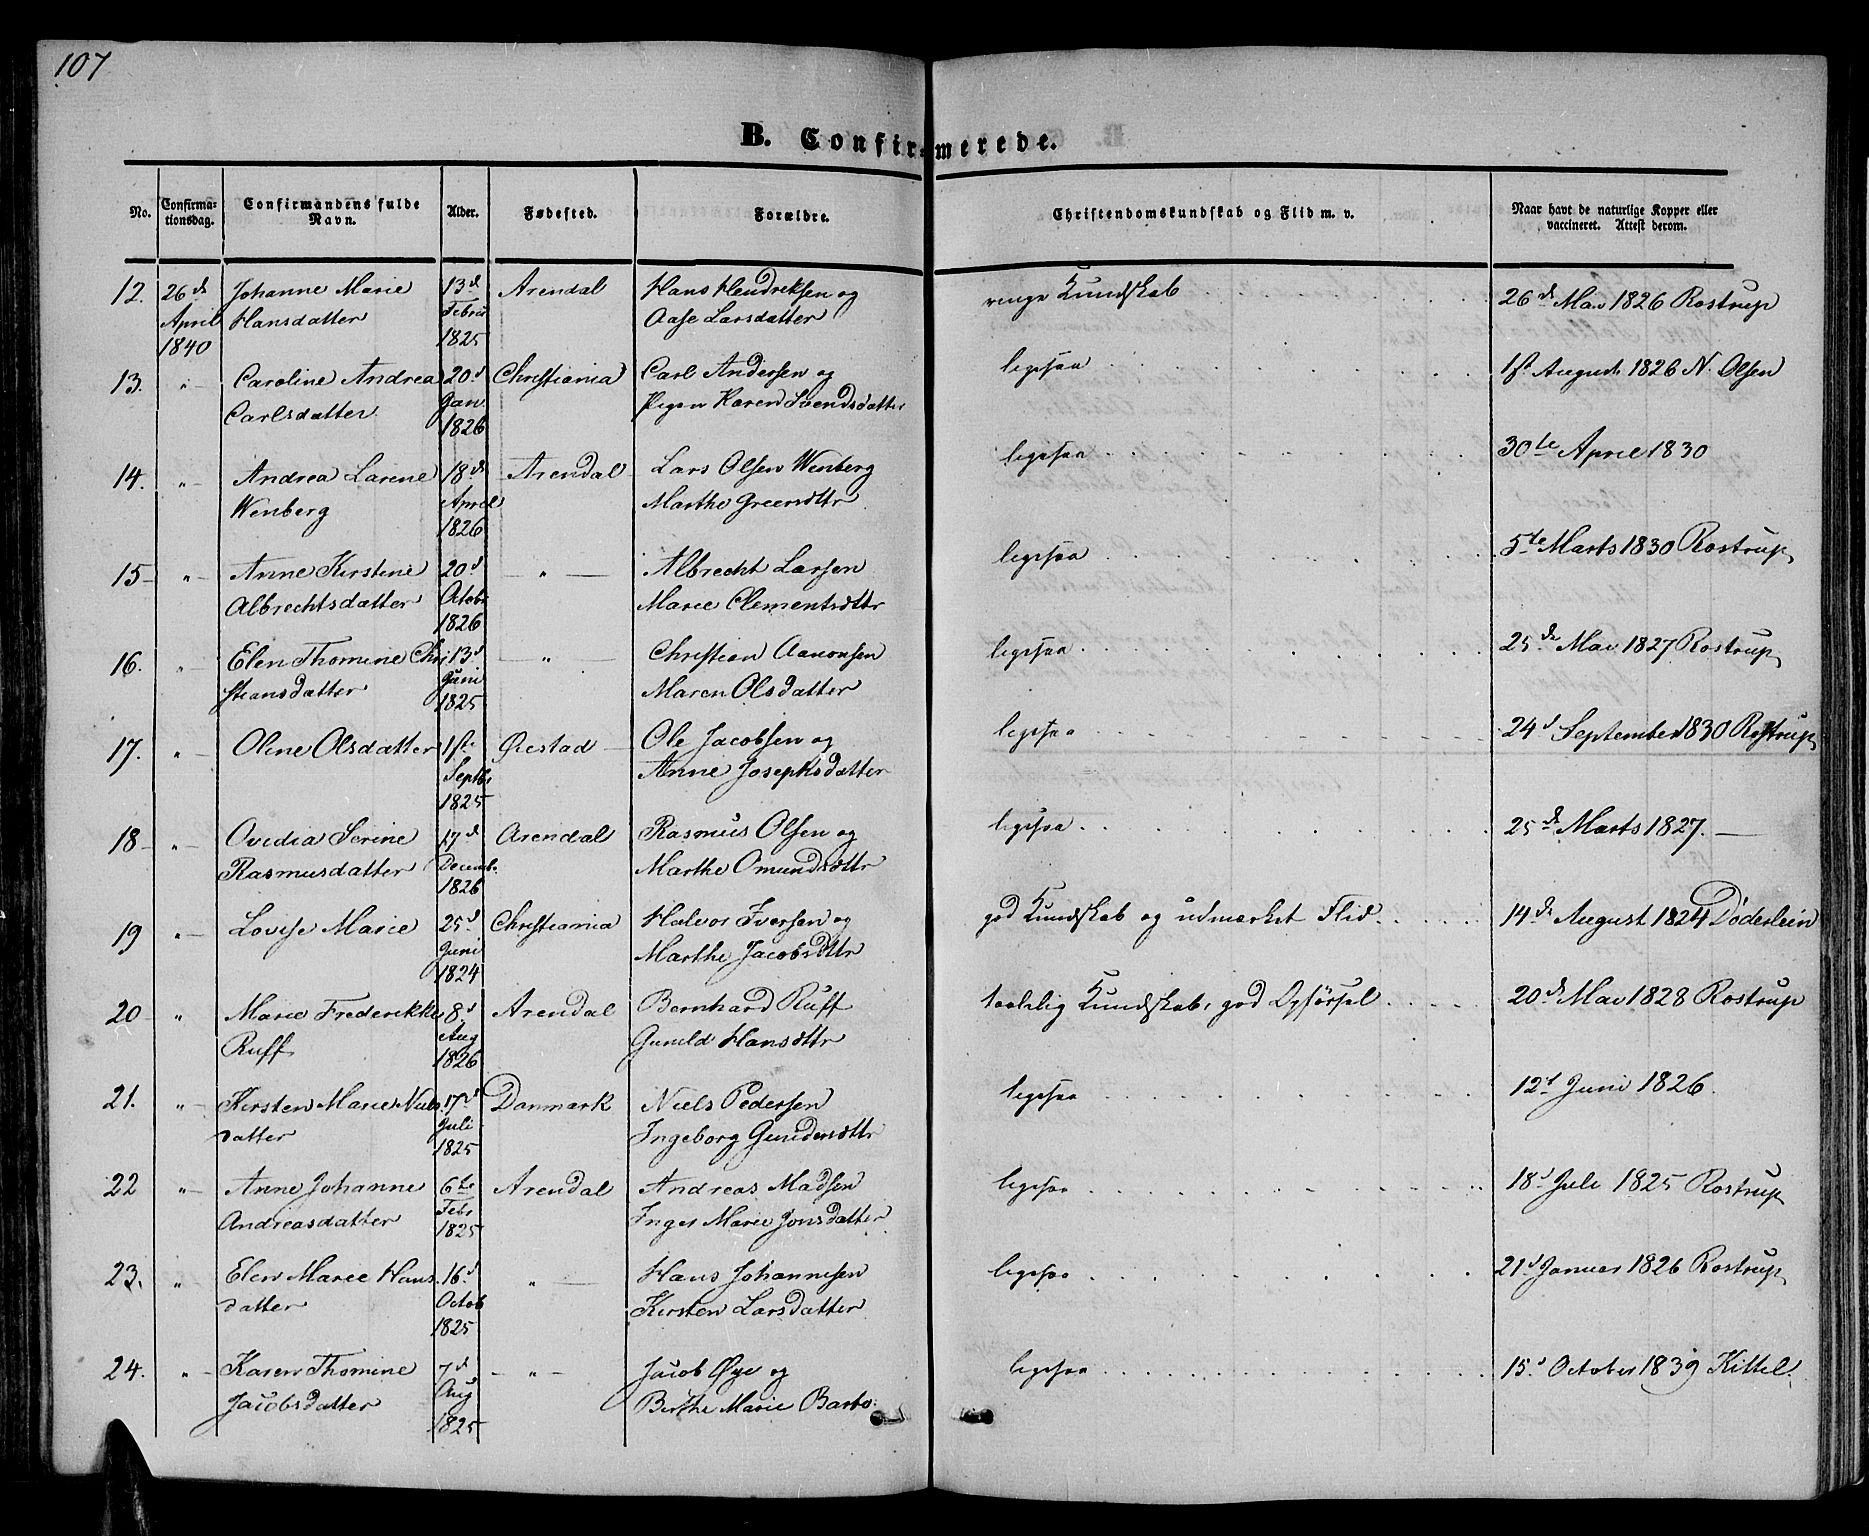 107
B. Confirmerede.
No. Confirmationsdag. Confirmandens fulde Navn. Alder. Fødested. Forældre. Christendomskundskab og Flid m. v. Naar havt de naturlige Kopper eller vaccineret. Attest derom.
12. 26de Johanne Marie 13d Arendal Hans Hendriksen og Kundskab 26de Mai 1826 Rostrup
April Hansdatter Febru Aase Larsdatter
1840 1825
13. " Caroline Andrea 20d Christiania Carl Andersen og ligesaa 1ste August 1826 N. Olsen
Carlsdatter Jan Pigen Karen Svendsdatter
1826
14. " Andrea Larine 18de Arendal Lars Olsen Wenberg ligesaa 30te April 1830
Wenberg April Marthe Greersdttr
1826
15 " Anne Kirstine 20d " Albrecht Larsen ligesaa 5te Marts 1830 Rostrup
Albrechtsdatter Octobr Marie Clementsdttr
1826
16. " Elen Thomine Chri 13d " Christian Aanonsen ligesaa 25de Mai 1827 Rostrup
stiansdatter Juni Maren Olsdatter
1825
17. " Oline Olsdatter 1ste Øiestad Ole Jacobsen og ligesaa 24d September 1830 Rostrup
Septbr Anne Josephsdatter
1825
18 " Ovidia Serine 17d Arendal Rasmus Olsen og ligesaa 25de Marts 1827.
Rasmusdatter Decemb. Marthe Omundsdttr
1826
19 " Lovise Marie 25d Christiania Halvor Iversen og god Kundskab og udmærket Flid 14de August 1824 Døderlein
Juni Marthe Jacobsdttr
1824
20 " Marie Frederikke 8d Arendal Bernhard Ruff taalelig Kundskab, god Opførsel 20de Mai 1828 Rostrup
Ruff Aug Gunild Hansdttr
1826
21. " Kirsten Marie Niels 17d Danmark Niels Pedersen ligesaa 12d Juni 1826.
datter Juli Ingeborg Gundersdttr
1825
22 " Anne Johanne 6te Arendal Andreas Madsen ligesaa 18d Juli 1825 Rostrup
Andreasdatter Febr Inger Marie Jonsdatter
1825
23. " Elen Marie Hans 16d " Hans Johannesen ligesaa 21d Januar 1826 Rostrup
datter Octob Kirsten Larsdatter
1825
24. " Karen Thomine 7d " Jacob Øye og ligesaa 15d October 1839 Kittel.
Jacobsdatter Aug Birthe Marie Barbo
1825